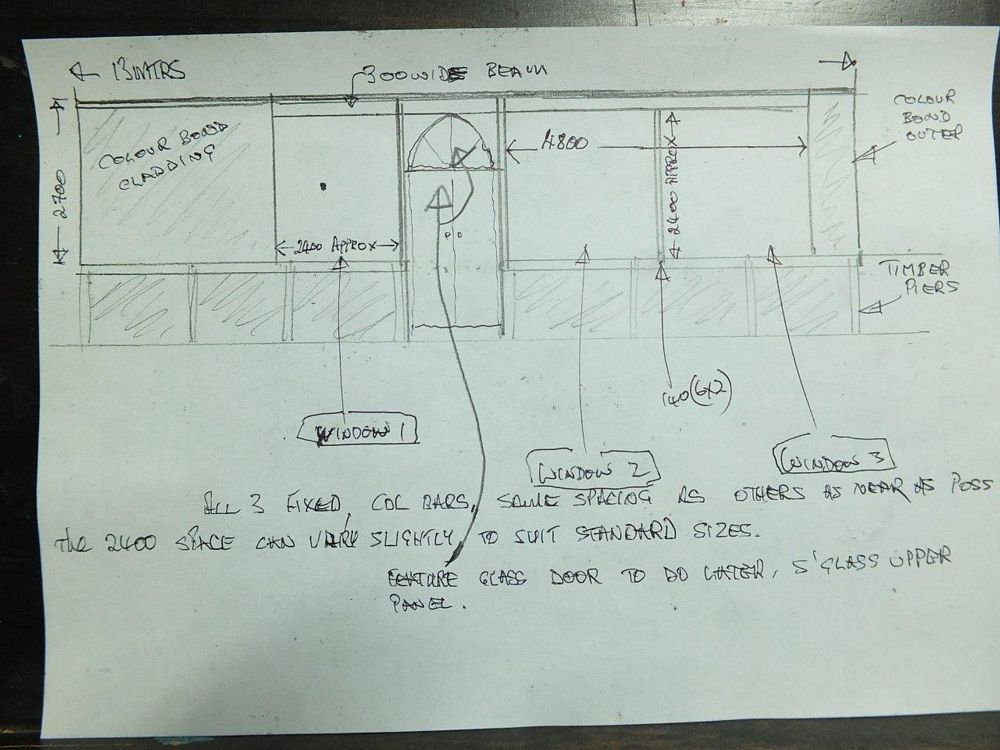 13 MTRS
300 WIDE BEAM
COLOUR BOND CLADDING
2700
2400 APPROX
4800
2400 APPROX
COLOUR
BOND
OUTER
TIMBER
PIERS
140 (6x2)
WINDOW 1
WINDOW 2
WINDOW 3
ALL 3 FIXED, COL BARS, SAME SPACING AS OTHERS AS NEAR AS POSS
the 2400 SPACE CAN VARY SLIGHTLY TO SUIT STANDARD SIZES.
FEATURE GLASS DOOR TO DO LATER, S'GLASS UPPER
PANEL.